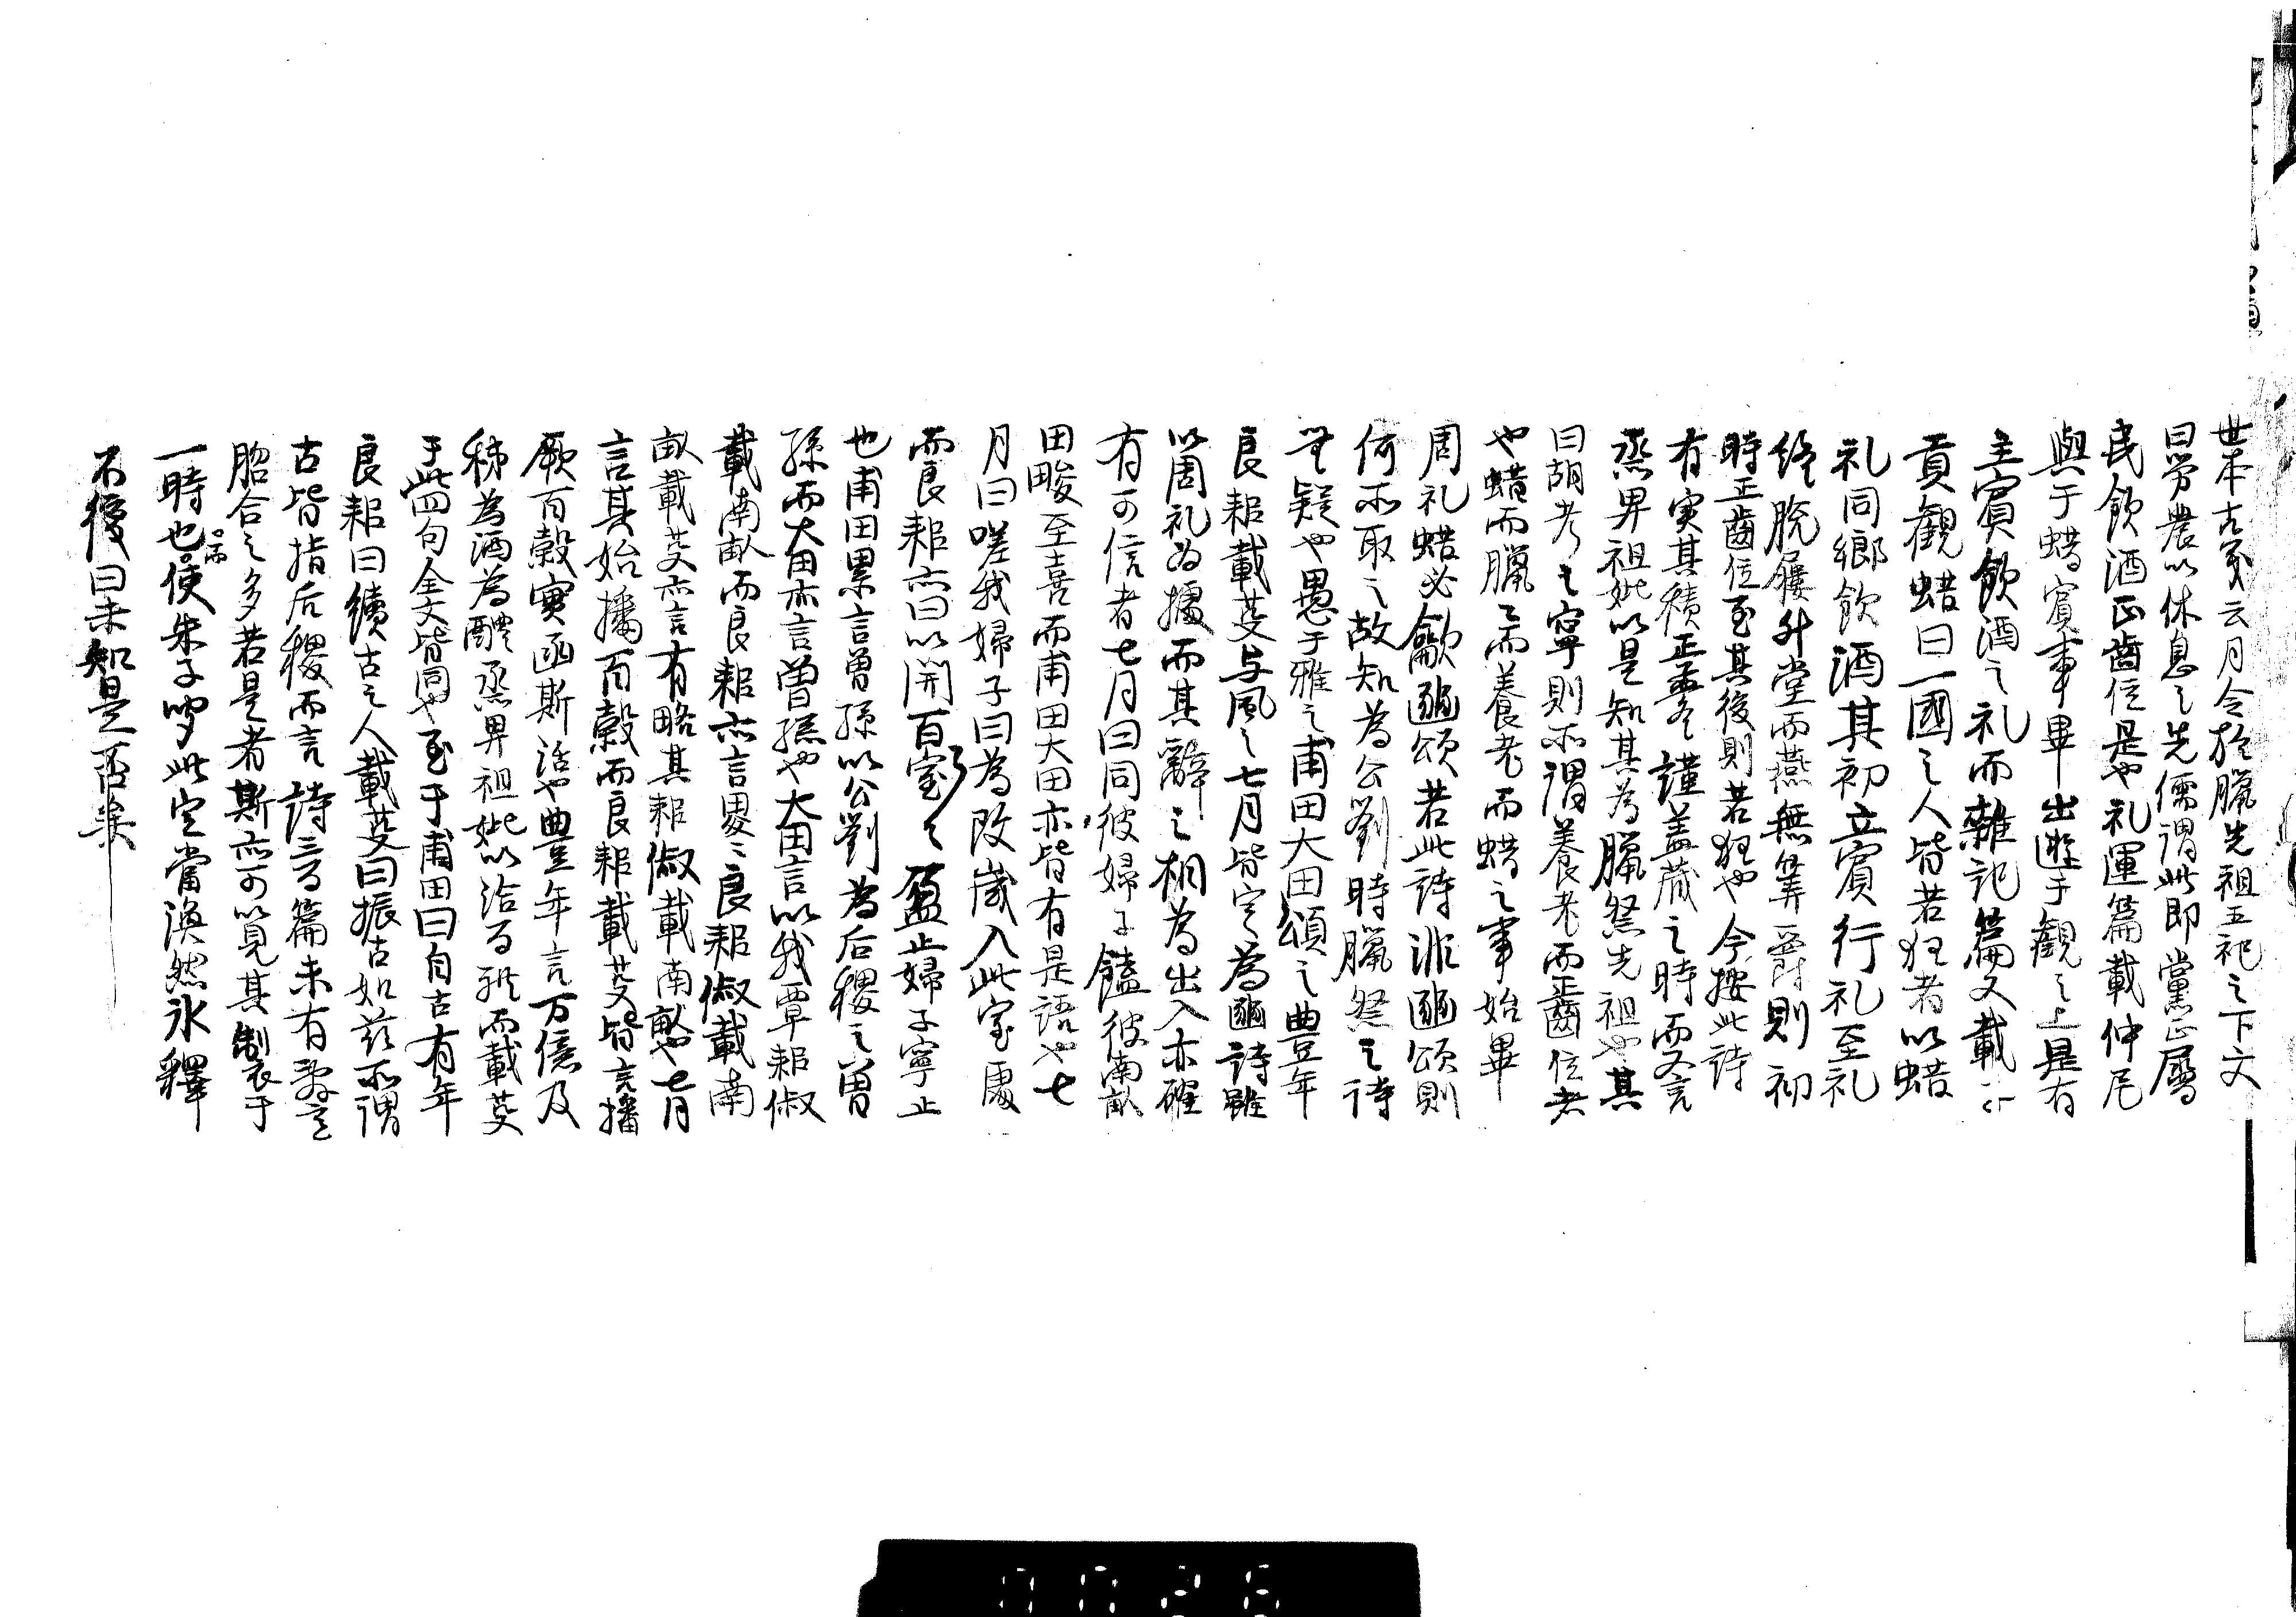 世本古義云月令於臘先祖五祀之下文
曰勞農以休息之先儒謂此即黨正屬
民飲酒正齒位是也礼運篇載仲尼
與于蜡賓事畢出遊于觀之上是有
主賓飲酒之礼而雜記篇又載子
貢觀蜡曰一國之人皆若狂者以蜡
礼同鄉飲酒其初立賓行礼至礼
終脫屨升堂而燕無筭爵則初
時正齒位至其後則若狂也今按此詩
有实其積正孟冬謹盖藏之時而又言
烝畀祖妣以是知其為臘祭先祖也其
曰胡考之寧則所謂養老而正齒位者
也蜡而臘〻而養老而蜡之事始畢
周礼蜡必龡豳頌若此詩非豳頌則
何所取之故知為公劉時臘祭之詩
無疑也愚于雅之甫田大田頌之豊年
良耜載芟与風之七月皆定為豳詩雖
以周礼为據而其辭之相為出入亦確
有可信者七月曰同彼婦子饁彼南畝
田畯至喜而甫田大田亦皆有是語也七
月曰嗟我婦子曰為改歲入此室處
而良耜亦曰以開百室百室盈止婦子寧止
也甫田累言曾孫以公劉為后稷之曾
孫而大田亦言曾孫也大田言以我覃耜俶
載南畝而良耜亦言畟〻良耜俶載南
畝載芟亦言有略其耜俶載南畝也七月
言其始播百穀而良耜載芟皆言播
厥百穀實函斯活也豊年言万億及
秭為酒為醴烝畀祖妣以洽百礼而載芟
于此四句全文皆同也至于甫田曰自古有年
良耜曰續古之人載芟曰振古如茲所謂
古皆指后稷而言詩三百篇未有辭意
脗合之多若是者斯亦可以見其製于
一時也使朱子聞此定當渙然冰釋
不復曰未知是否矣